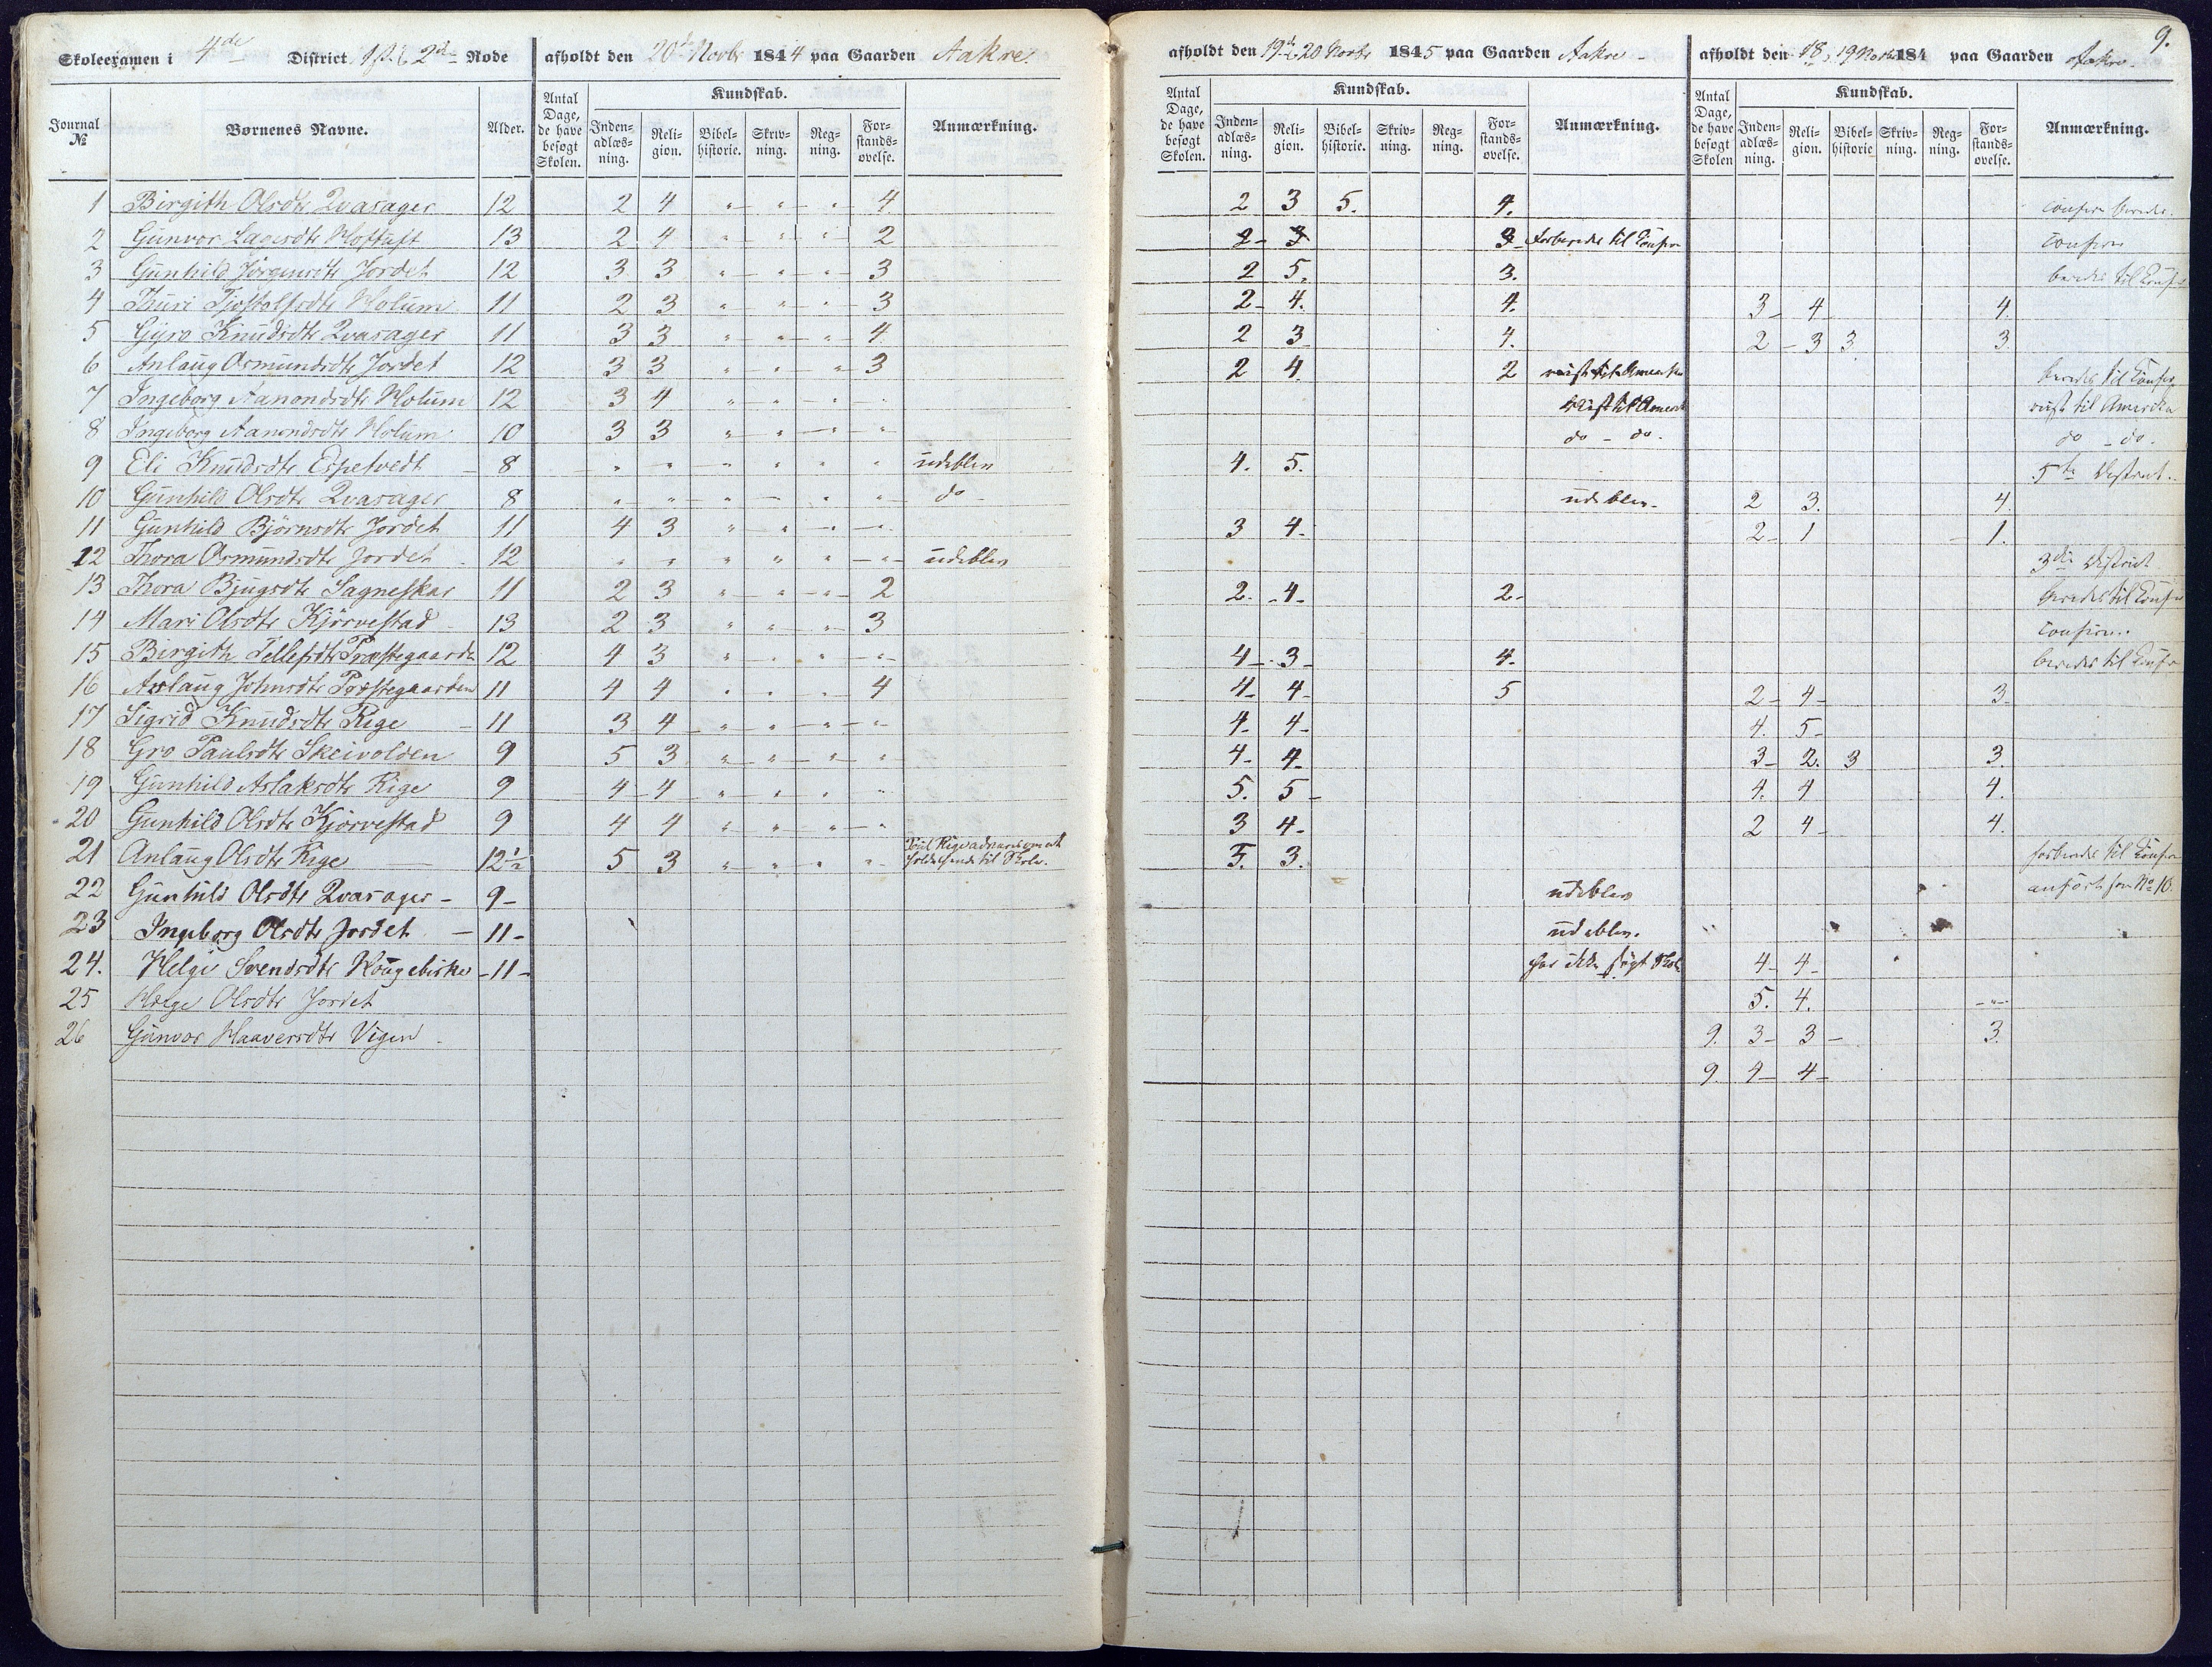 Skoleexamen i 4de District 1ste & 2d Rode afholdt den 20d Novbr 1844 paa Gaarden Aakre.
Journal № Børnenes Navne. Alder. Antal Dage, de have besøgt Skolen. Kundskab. Indenadlæsning. Religion. Bibelhistorie. Skrivning. Regning. Forstandsøvelse. Anmærkning.
1 Birgith Olsdtr Qvasager 12 2 4 " " " 4
2 Gunvor 13 2 4 " " " 2
3 Gunhild Jørgensdtr Jordet 12 3 3 " " " 3
4 Thuri Tjostolfsdtr Holum 11 2 3 " " " 3
5 Gyro Knudsdtr Qvasager 11 3 3 " " " 4
6 Anlaug Osmundsdtr Jordet 12 3 3 " " " 3
7 Ingeborg Aanondsdtr Holum 12 3 4 " " " "
8 Ingeborg Aanondsdtr Holum 10 3 3 " " " "
9 Eli Knudsdtr Espetvedt 8 " " " " " " udeblev
10 Gunhild Olsdtr Qvasager 8 " " " " " " do
11 Gunhild Björnsdtr Jordet 11 4 3 " " " "
12 Thora Osmundsdtr Jordet 12 " " " " " " udeblev
13 Thora Bjugsdtr Sagneskar 11 2 3 " " " 2
14 Mari Olsdtr Kjörvestad 13 2 3 " " " 3
15 Birgith Tellefsdtr Præstegaarden 12 4 3 " " " "
16 Aslaug Johnsdtr Præstegaarden 11 4 4 " " " 4
17 Sigrid Knudsdtr Rige 11 3 4 " " " "
18 Gro Paulsdtr Skeivolden 9 5 3 " " " "
19 Gunhild Aslaksdtr Rige 9 4 4 " " " "
20 Gunhild Olsdtr Kjörvestad 9 4 4 " " " "
21 Anlaug Olsdtr Rige 12½ 5 3 " " " " Rige om at holde hende til Skole.
22 Gunhild Olsdtr Qvasager - 9 -
23 Ingeborg Olsdtr Jordet - 11 -
24. Helge Svendsdtr - 11 -
25 Helge Olsdtr Jordet
26 Gunvor Haaversdtr Vigen
9.
afholdt den 19d & 20 Novbr 1845 paa Gaarden Aakre - afholdt den 18, 19 Novbr 184 paa Gaarden Aakre -
Antal Dage, de have besøgt Skolen. Kundskab. Indenadlæsning. Religion. Bibelhistorie. Skrivning. Regning. Forstandsøvelse. Anmærkning. Antal Dage, de have besøgt Skolen Kundskab. Indenadlæsning. Religion. Bibelhistorie Skrivning. Regning. Forstandsøvelse. Anmærkning.
2 3 5. 4. confirm
2 - 3 3 forberedes til Confirm confirm
2 5. 3. beredes til Confirm
2 - 4. 4. 3 - 4 4.
2 3 4. 2 - 3 3. 3.
2 4. 2 reist til Amerika beredes til Confirm
reist til Amerik reist til Amerika
do - do. do - do.
4. 5. 5te District.
udeblev - 2 3. 4.
3 4. 2 - 1 - 1.
3die District
2. - 4 - 2 - beredes til Confir
confirm.
4 - 3 - 4. beredes til Confir
4 - 4 - 5 2 - 4 - 3 -
4 - 4 - 4. 5 -
4 - 4 - 3 - 2. 3 3.
5. 5 - 4. 4 4.
3 4 - 2 4 - 4.
5. 3. forberedes til Confirm
udeblev anført som No 10.
udeblev.
har ikke søgt Skole 4 - 4 -
5. 4. - " -
9. 3 - 3 - 3.
9. 4 - 4 -